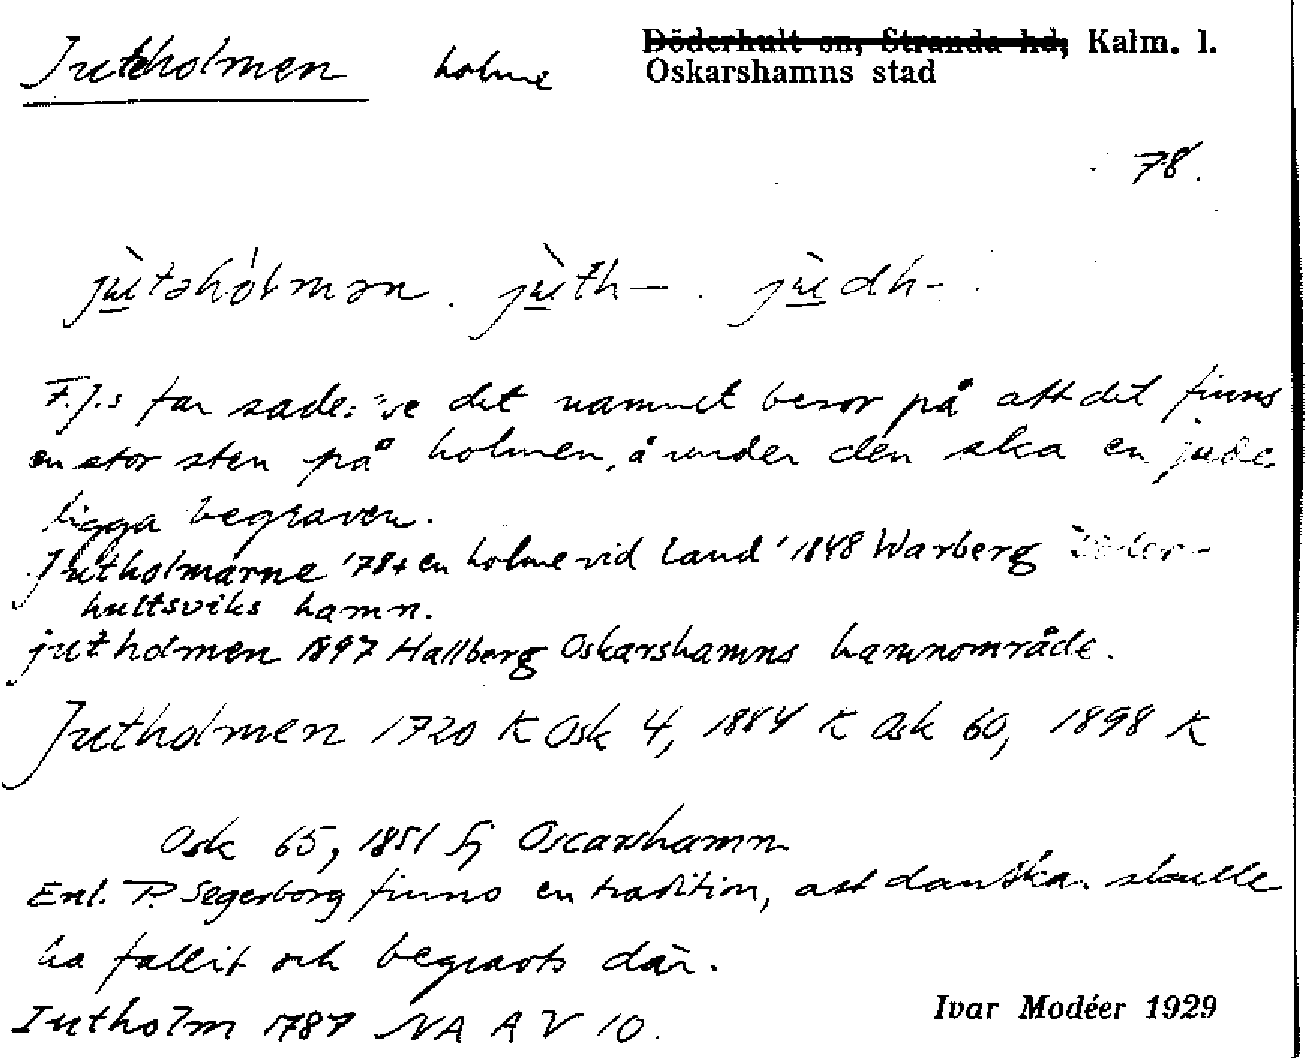 Juteholmen holme Döderhult sn, Stranda hd, Kalm. l.
Oskarshamns stad
78.
jùtəhólmən. jùth- . jùdh- .
F.J:s far sade: "ve det namnet beror på att det finns
en stor sten på holmen, å under den ska en jude
ligga begraven.
Jutholmarne '78+ en holme vid land' 1848 Warberg Döder-
hultsviks hamn.
jutholmen 1897 Hallberg Oskarshamns hamnområde.
Jutholmen 1720 K Osk 4, 1884 K Osk 60, 1898 K
Osk 65, 1851 Sj Oscarshamn
Enl. P. Segerborg finns en tradition, att danskar skulle
ha fallit och begravts där.
Jutholm 1787 NA A V 10.
Ivar Modéer 1929